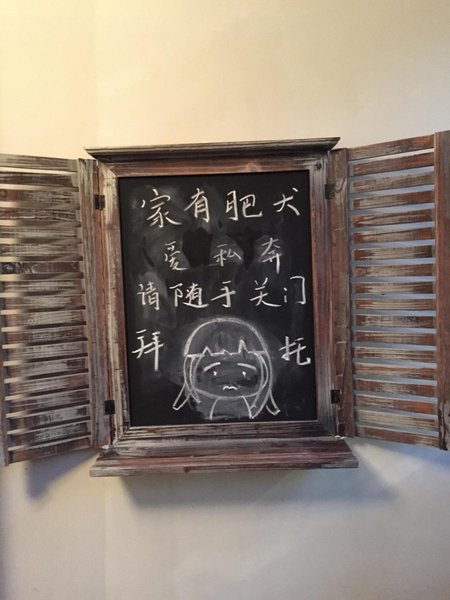 家有肥犬
爱私奔
请随手关门
拜托